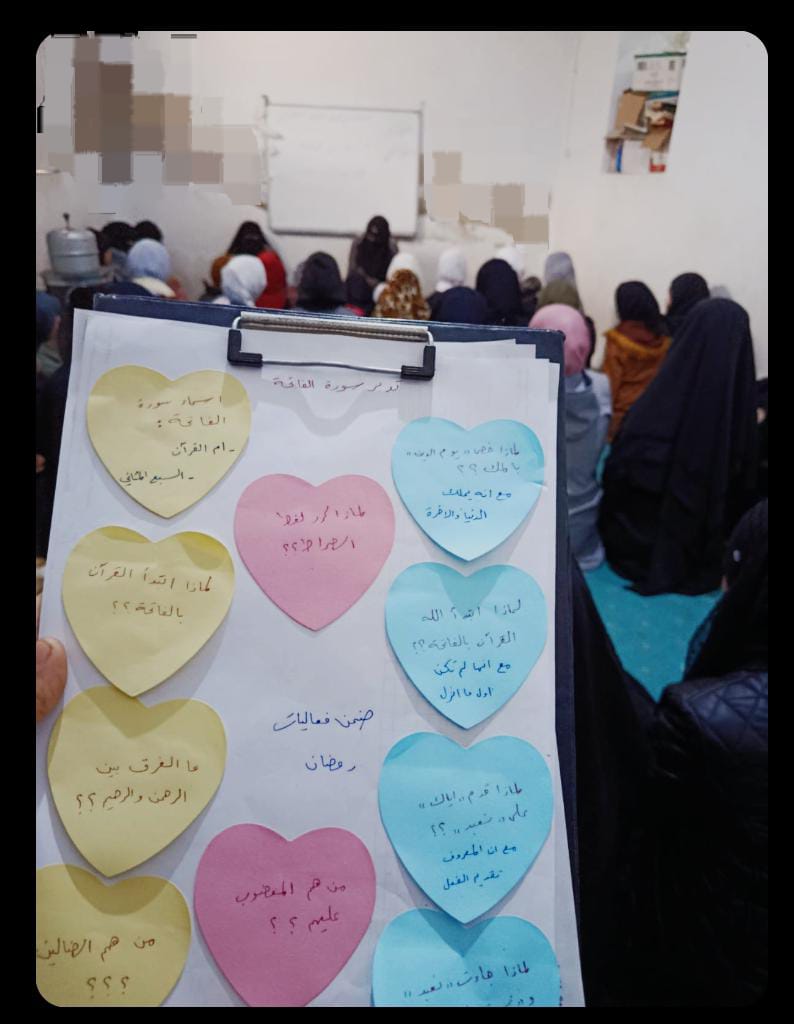 تدبر سورة الفاتحة
اسماء سورة
الفاتحة :
- ام القرآن
- السبع المثاني
لماذا خص " يوم الدين "
بالملك ؟؟
مع انه يملك
الدنيا والاخرة
لماذا كرر لفظ
الصراط ؟؟
لماذا ابتدأ القرآن
بالفاتحة ؟؟
لماذا ابتدأ الله
القرآن بالفاتحة ؟؟
مع انها لم تكن
اول ما انزل
ضمن فعاليات
رمضان
ما الفرق بين
الرحمن والرحيم ؟؟
لماذا قدم " اياك "
على " نعبد " ؟؟
مع ان المعروف
تقديم الفعل
من هم المغضوب
عليهم ؟ ؟
من هم الضالين
؟ ؟ ؟
لماذا جاءت " نعبد "